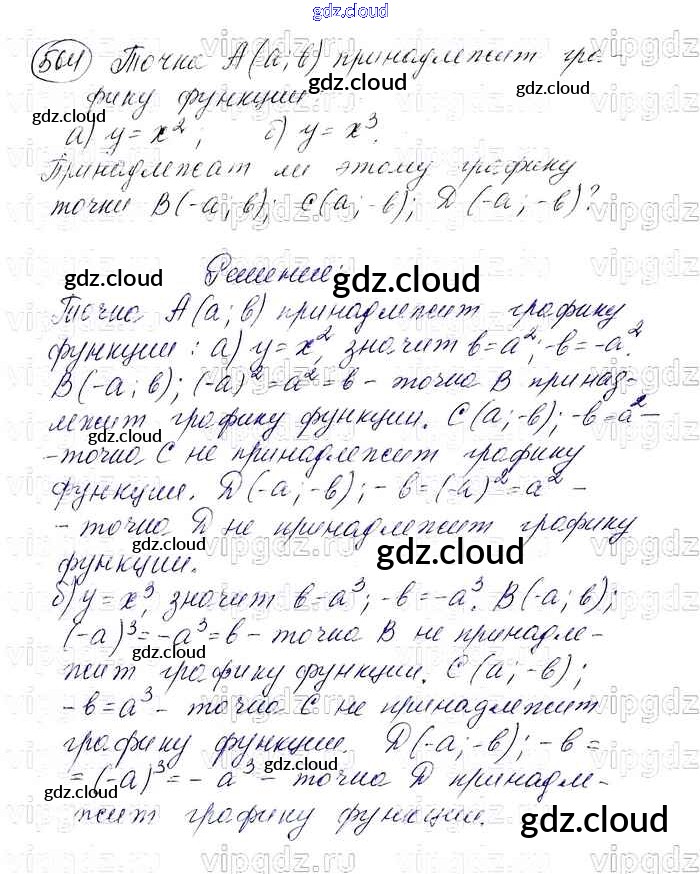 gdz.cloud
504 Точка A(a; в) принадлежит гра-
фику функции
gdz.cloud
gdz.cloud
а) y = x²; б) y = x³.
Принадлежат ли этому графику
точки B(-a; в); C(a; -в); D(-a; -в)?
Решение:
gdz.cloud
gdz.cloud
Точка A(a; в) принадлежит графику
функции: а) y = x², значит в = a², -в = -a².
B(-a; в); (-a)² = a² = в - точка B принад-
лежит графику функции. C(a; -в); -в = a² -
gdz.cloud
- точка C не принадлежит графику
функции. D(-a; -в); -в = (-a)² = a² -
- точка D не принадлежит графику
gdz.cloud
gdz.cloud
функции.
б) y = x³, значит в = a³; -в = -a³. B(-a; в);
(-a)³ = -a³ = в - точка B не принадле-
gdz.cloud
жит графику функции. C(a; -в);
-в = a³ - точка C не принадлежит
графику функции. D(-a; -в); -в =
= (-a)³ = -a³ - точка D принадле-
gdz.cloud
жит графику функции.
gdz.cloud